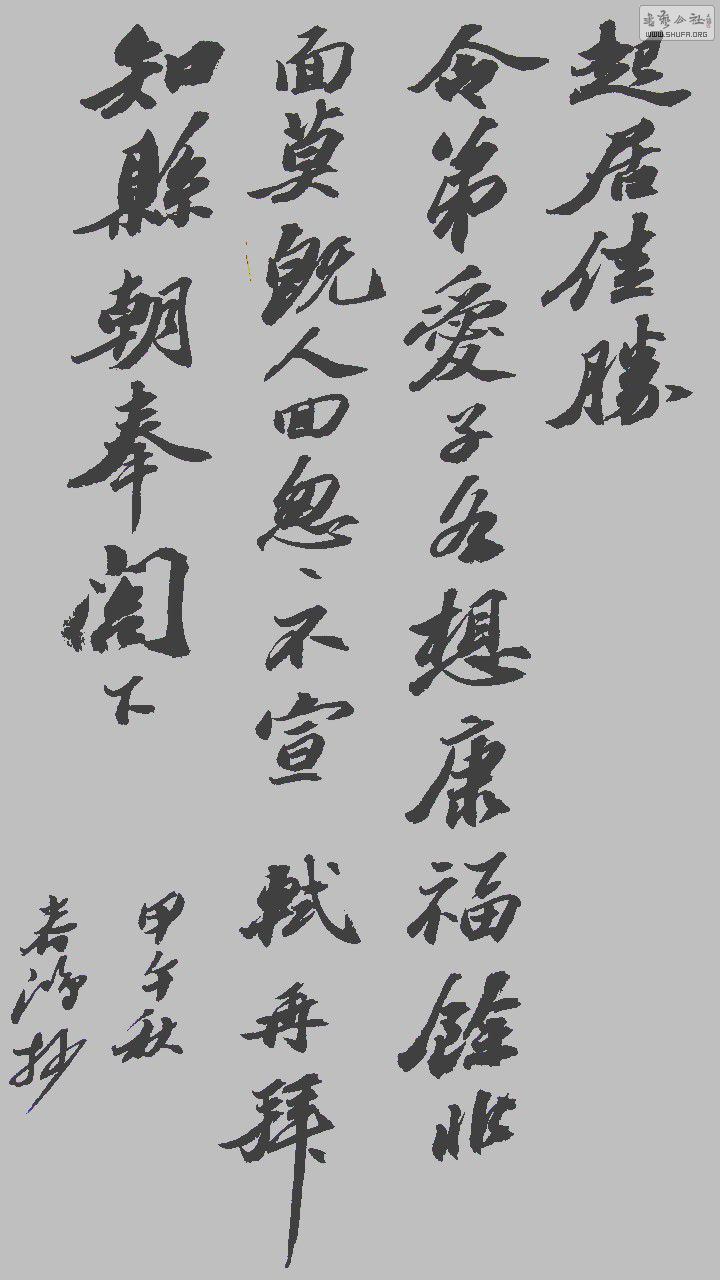 起居佳勝
令弟愛子各想康福餘非
面莫既人回怱、不宣 軾再拜
知縣朝奉閤下
甲午秋
春鴻抄
書藝公社
WWW.SHUFA.ORG